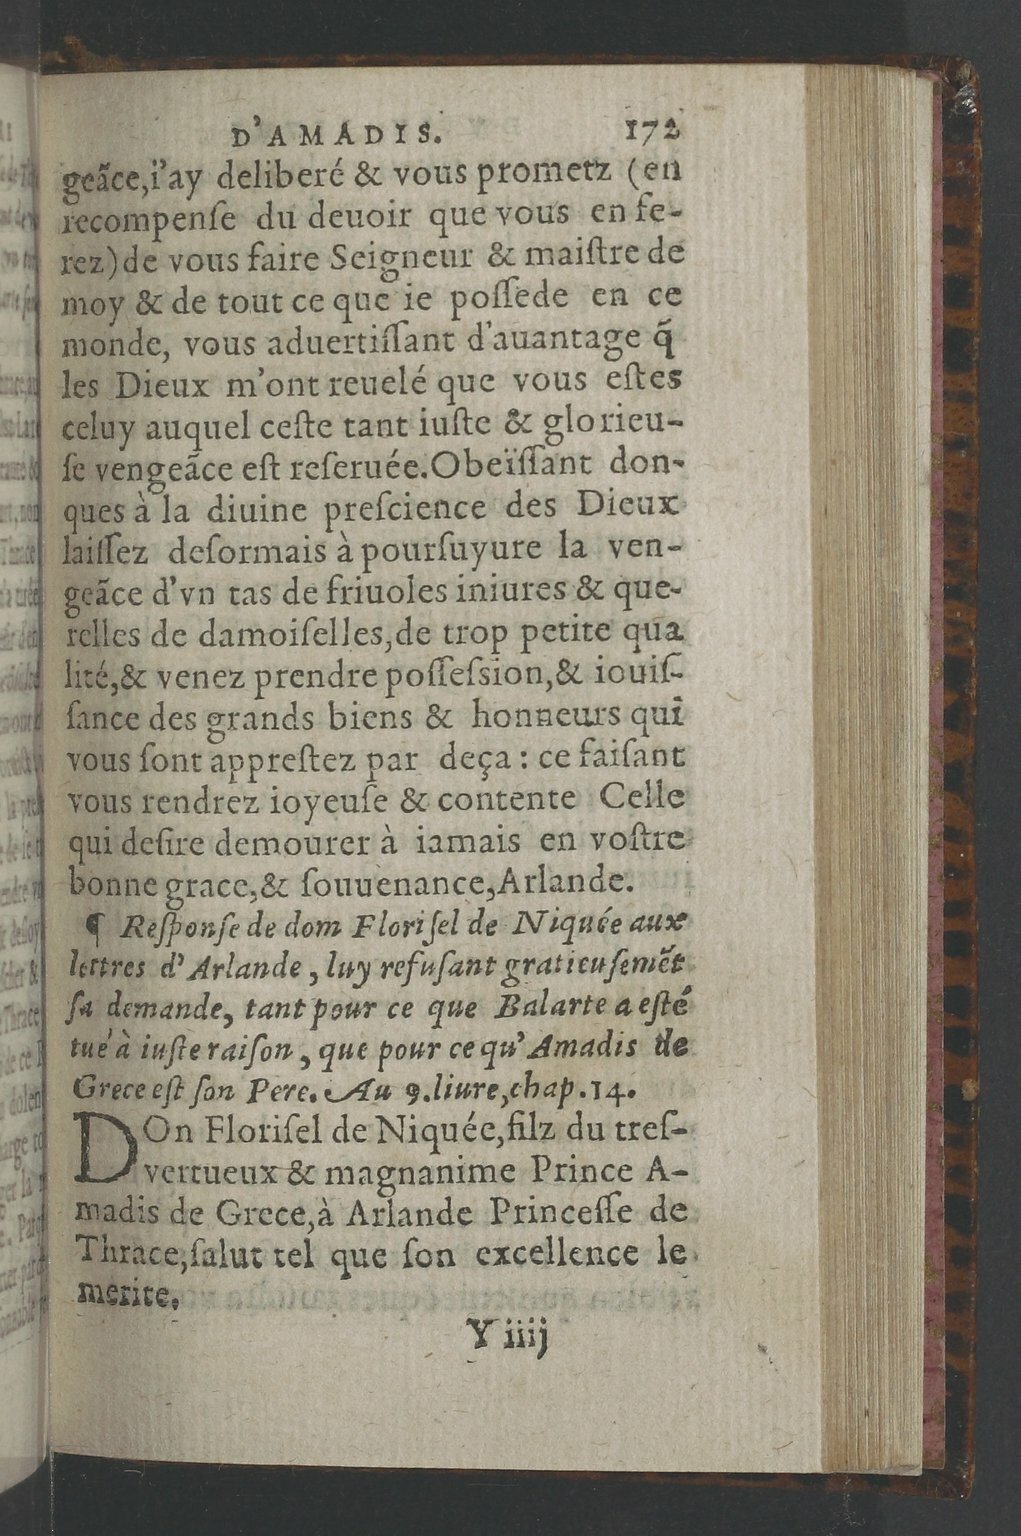 D'AMADIS. 172
geãce, i'ay deliberé & vous prometz (en
recompenſe du deuoir que vous en fe-
rez) de vous faire Seigneur & maiſtre de
moy & de tout ce que ie poſſede en ce
monde, vous aduertiſſant d'auantage q̃
les Dieux m'ont reuelé que vous eſtes
celuy auquel ceſte tant iuſte & glorieu-
ſe vengeãce eſt reſeruée. Obeïſſant don-
ques à la diuine preſcience des Dieux
laiſſez deſormais à pourſuyure la ven-
geãce d'vn tas de friuoles iniures & que-
relles de damoiſelles, de trop petite qua
lité, & venez prendre poſſeſsion, & iouiſ-
ſance des grands biens & honneurs qui
vous ſont appreſtez par deça : ce faiſant
vous rendrez ioyeuſe & contente Celle
qui deſire demourer à iamais en voſtre
bonne grace, & ſouuenance, Arlande.
¶ Reſponſe de dom Floriſel de Niquée aux
lettres d'Arlande, luy refuſant gratieuſemẽt
ſa demande, tant pour ce que Balarte a eſté
tué à iuſte raiſon, que pour ce qu'Amadis de
Grece eſt ſon Pere. Au 9. liure, chap. 14.
DOn Floriſel de Niquée, filz du treſ-
vertueux & magnanime Prince A-
madis de Grece, à Arlande Princeſſe de
Thrace, ſalut tel que ſon excellence le
merite.
Y iiij